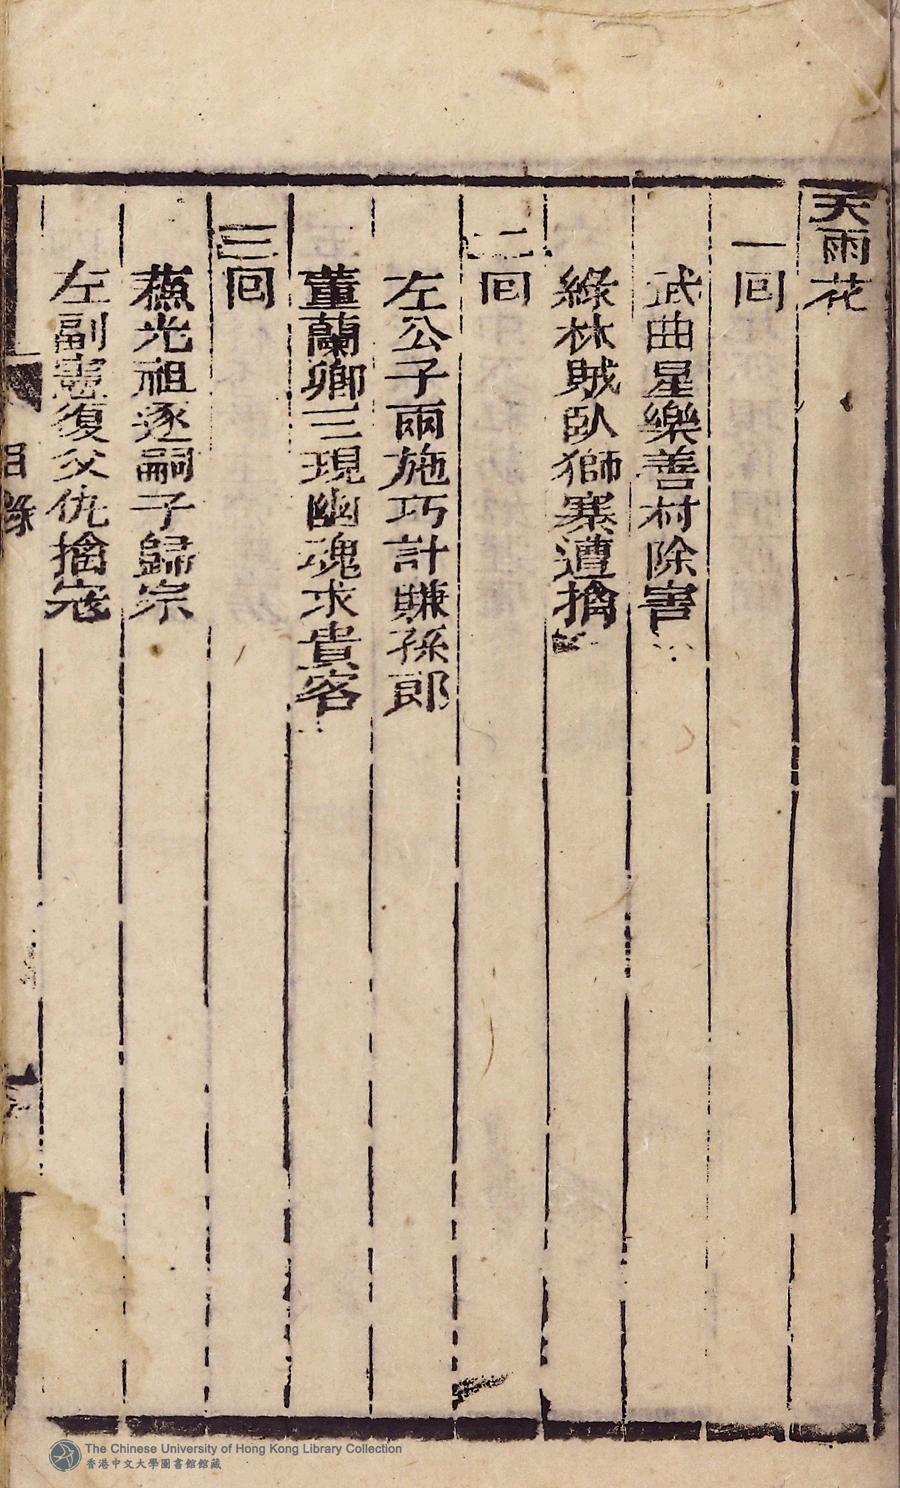 天雨花
一回
武曲星樂善村除害
綠林賊臥獅寨遭擒
二回
左公子兩施巧計賺孫郎
董蘭卿三現幽魂求貴客
三回
蕉光祖逐嗣子歸宗
左副憲復父仇擒寇
目錄
The Chinese University of Hong Kong Library Collection
香港中文大學圖書館館藏